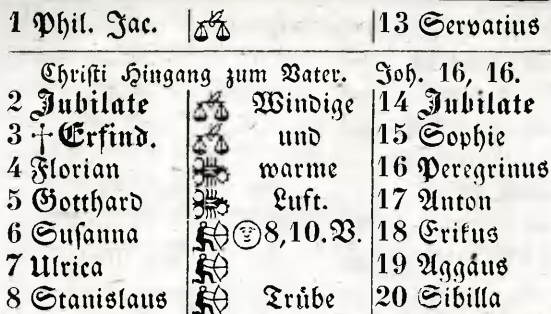 1 Phil. Jac. 13 Servatius
Christi Hingang zum Vater. Joh. 16, 16.
2 Jubilate Windige 14 Jubilate
3 † Erfind. und 15 Sophie
4 Florian warme 16 Peregrinus
5 Gotthard Luft. 17 Anton
6 Susanna 8,10. V. 18 Erikus
7 Ulrica 19 Aggäus
8 Stanislaus Trübe 20 Sibilla